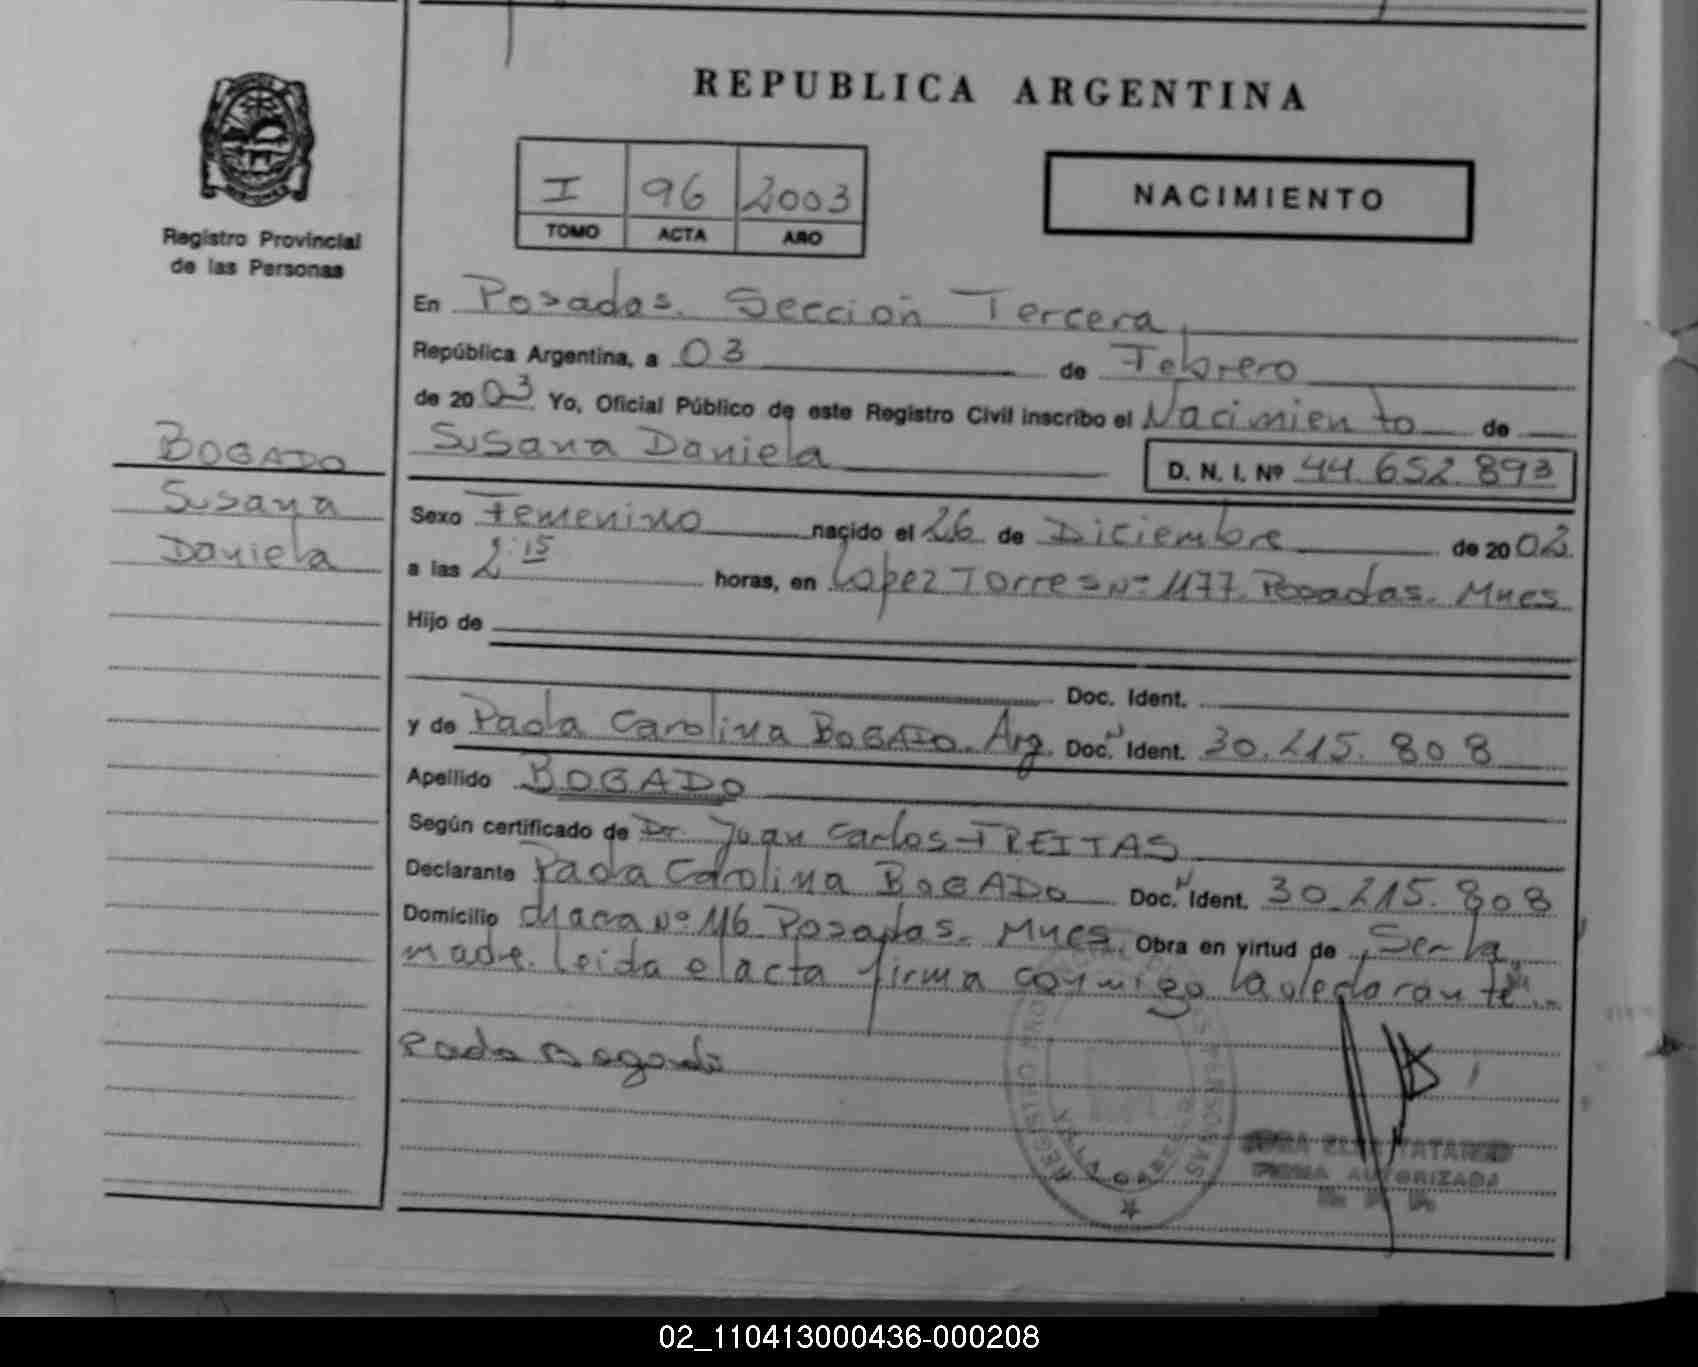 REPUBLICA ARGENTINA
I 96 2003
TOMO ACTA AÑO
NACIMIENTO
Registro Provincial
de las Personas
BOGADO
Susana
Daniela
En Posadas. Sección Tercera,
República Argentina, a 03 de Febrero
de 2003 Yo, Oficial Público de este Registro Civil inscribo el Nacimiento de
Susana Daniela D. N. I. Nº 44.652.893
Sexo Femenino nacido el 26 de Diciembre de 2002
a las 2:15 horas, en Lopez Torres Nº 1177. Posadas. Mnes
Hijo de
Doc. Ident.
y de Paola Carolina BOGADO. Arg. Doc. N Ident. 30.215.808
Apellido BOGADO
Según certificado de Dr. Juan Carlos FREITAS
Declarante Paola Carolina BOGADO Doc. N Ident. 30.215.808
Domicilio chacra Nº 116 Posadas. Mnes. Obra en virtud de Ser la
madre. Leida el acta firma conmigo la declarante..
Paola Bogado
REGISTRO PERSONAS
VILLA
FIRMA AUTORIZADA
02_110413000436-000208